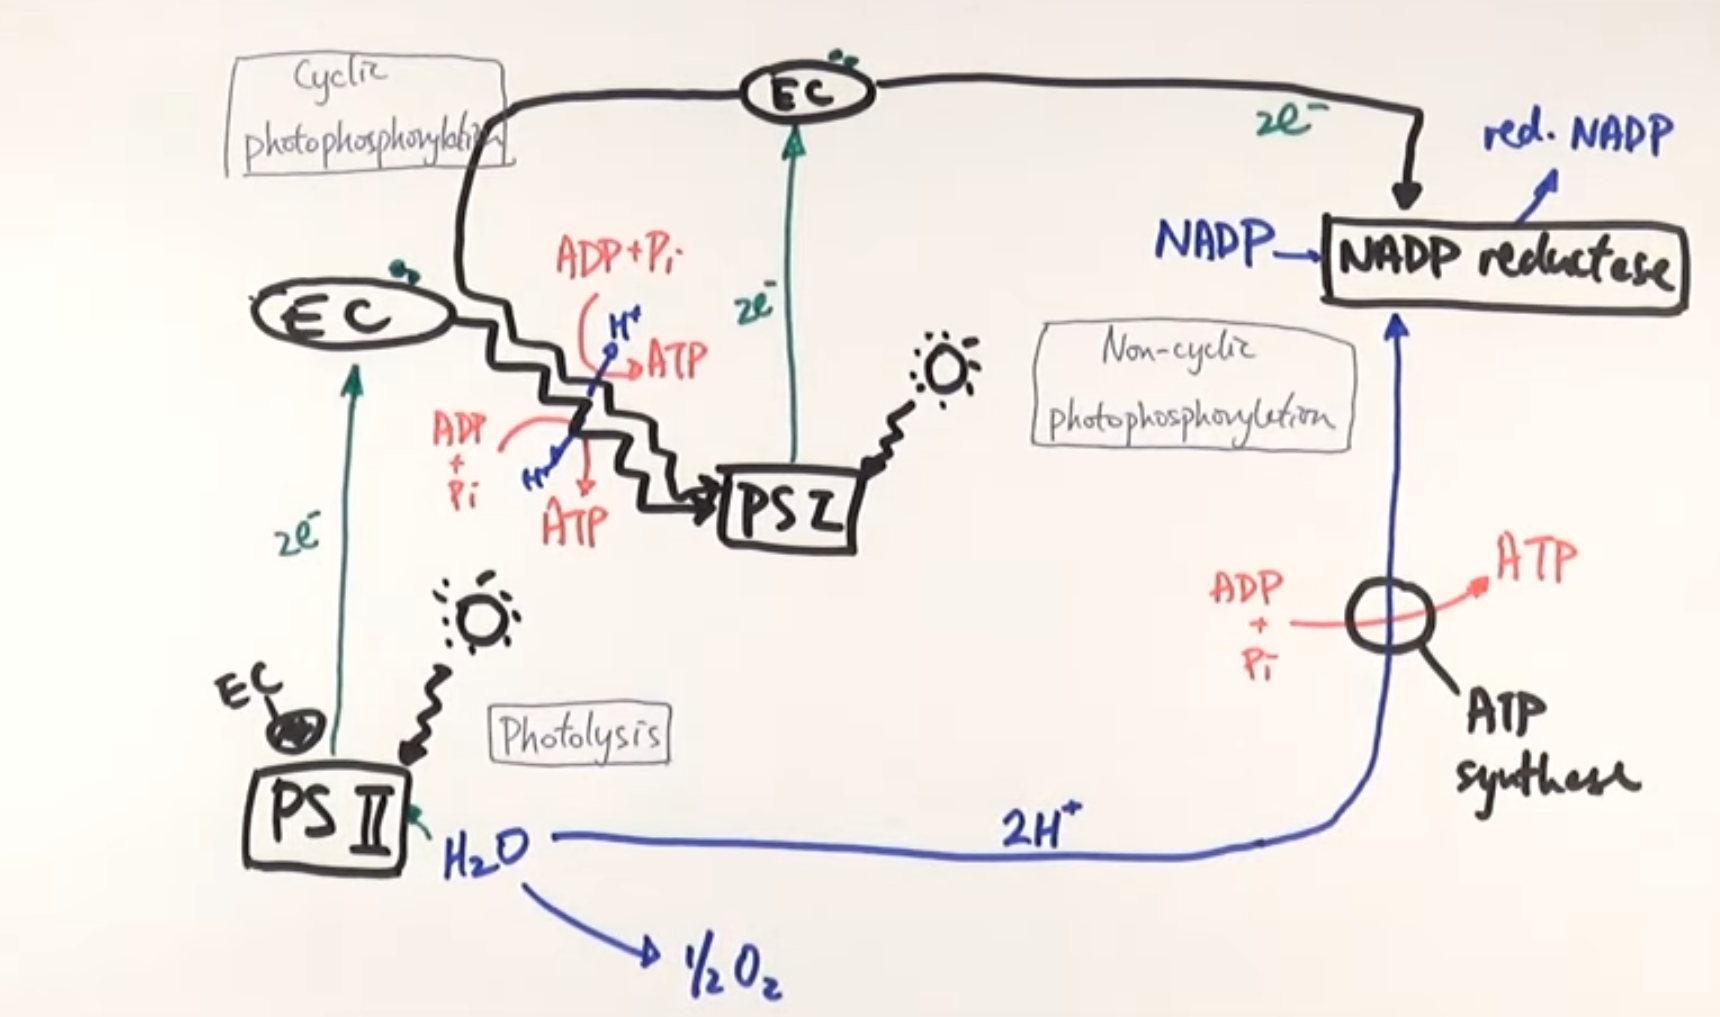 Cyclic
photophosphorylation
EC
2e⁻
red. NADP
NADP
NADP reductase
ADP+Pi
H⁺
ATP
EC
2e⁻
Non-cyclic
photophosphorylation
ADP
+
Pi
H⁺
ATP
PS I
2e⁻
ADP
+
Pi
ATP
ATP
synthase
EC
Photolysis
PS II
H₂O
2H⁺
½ O₂